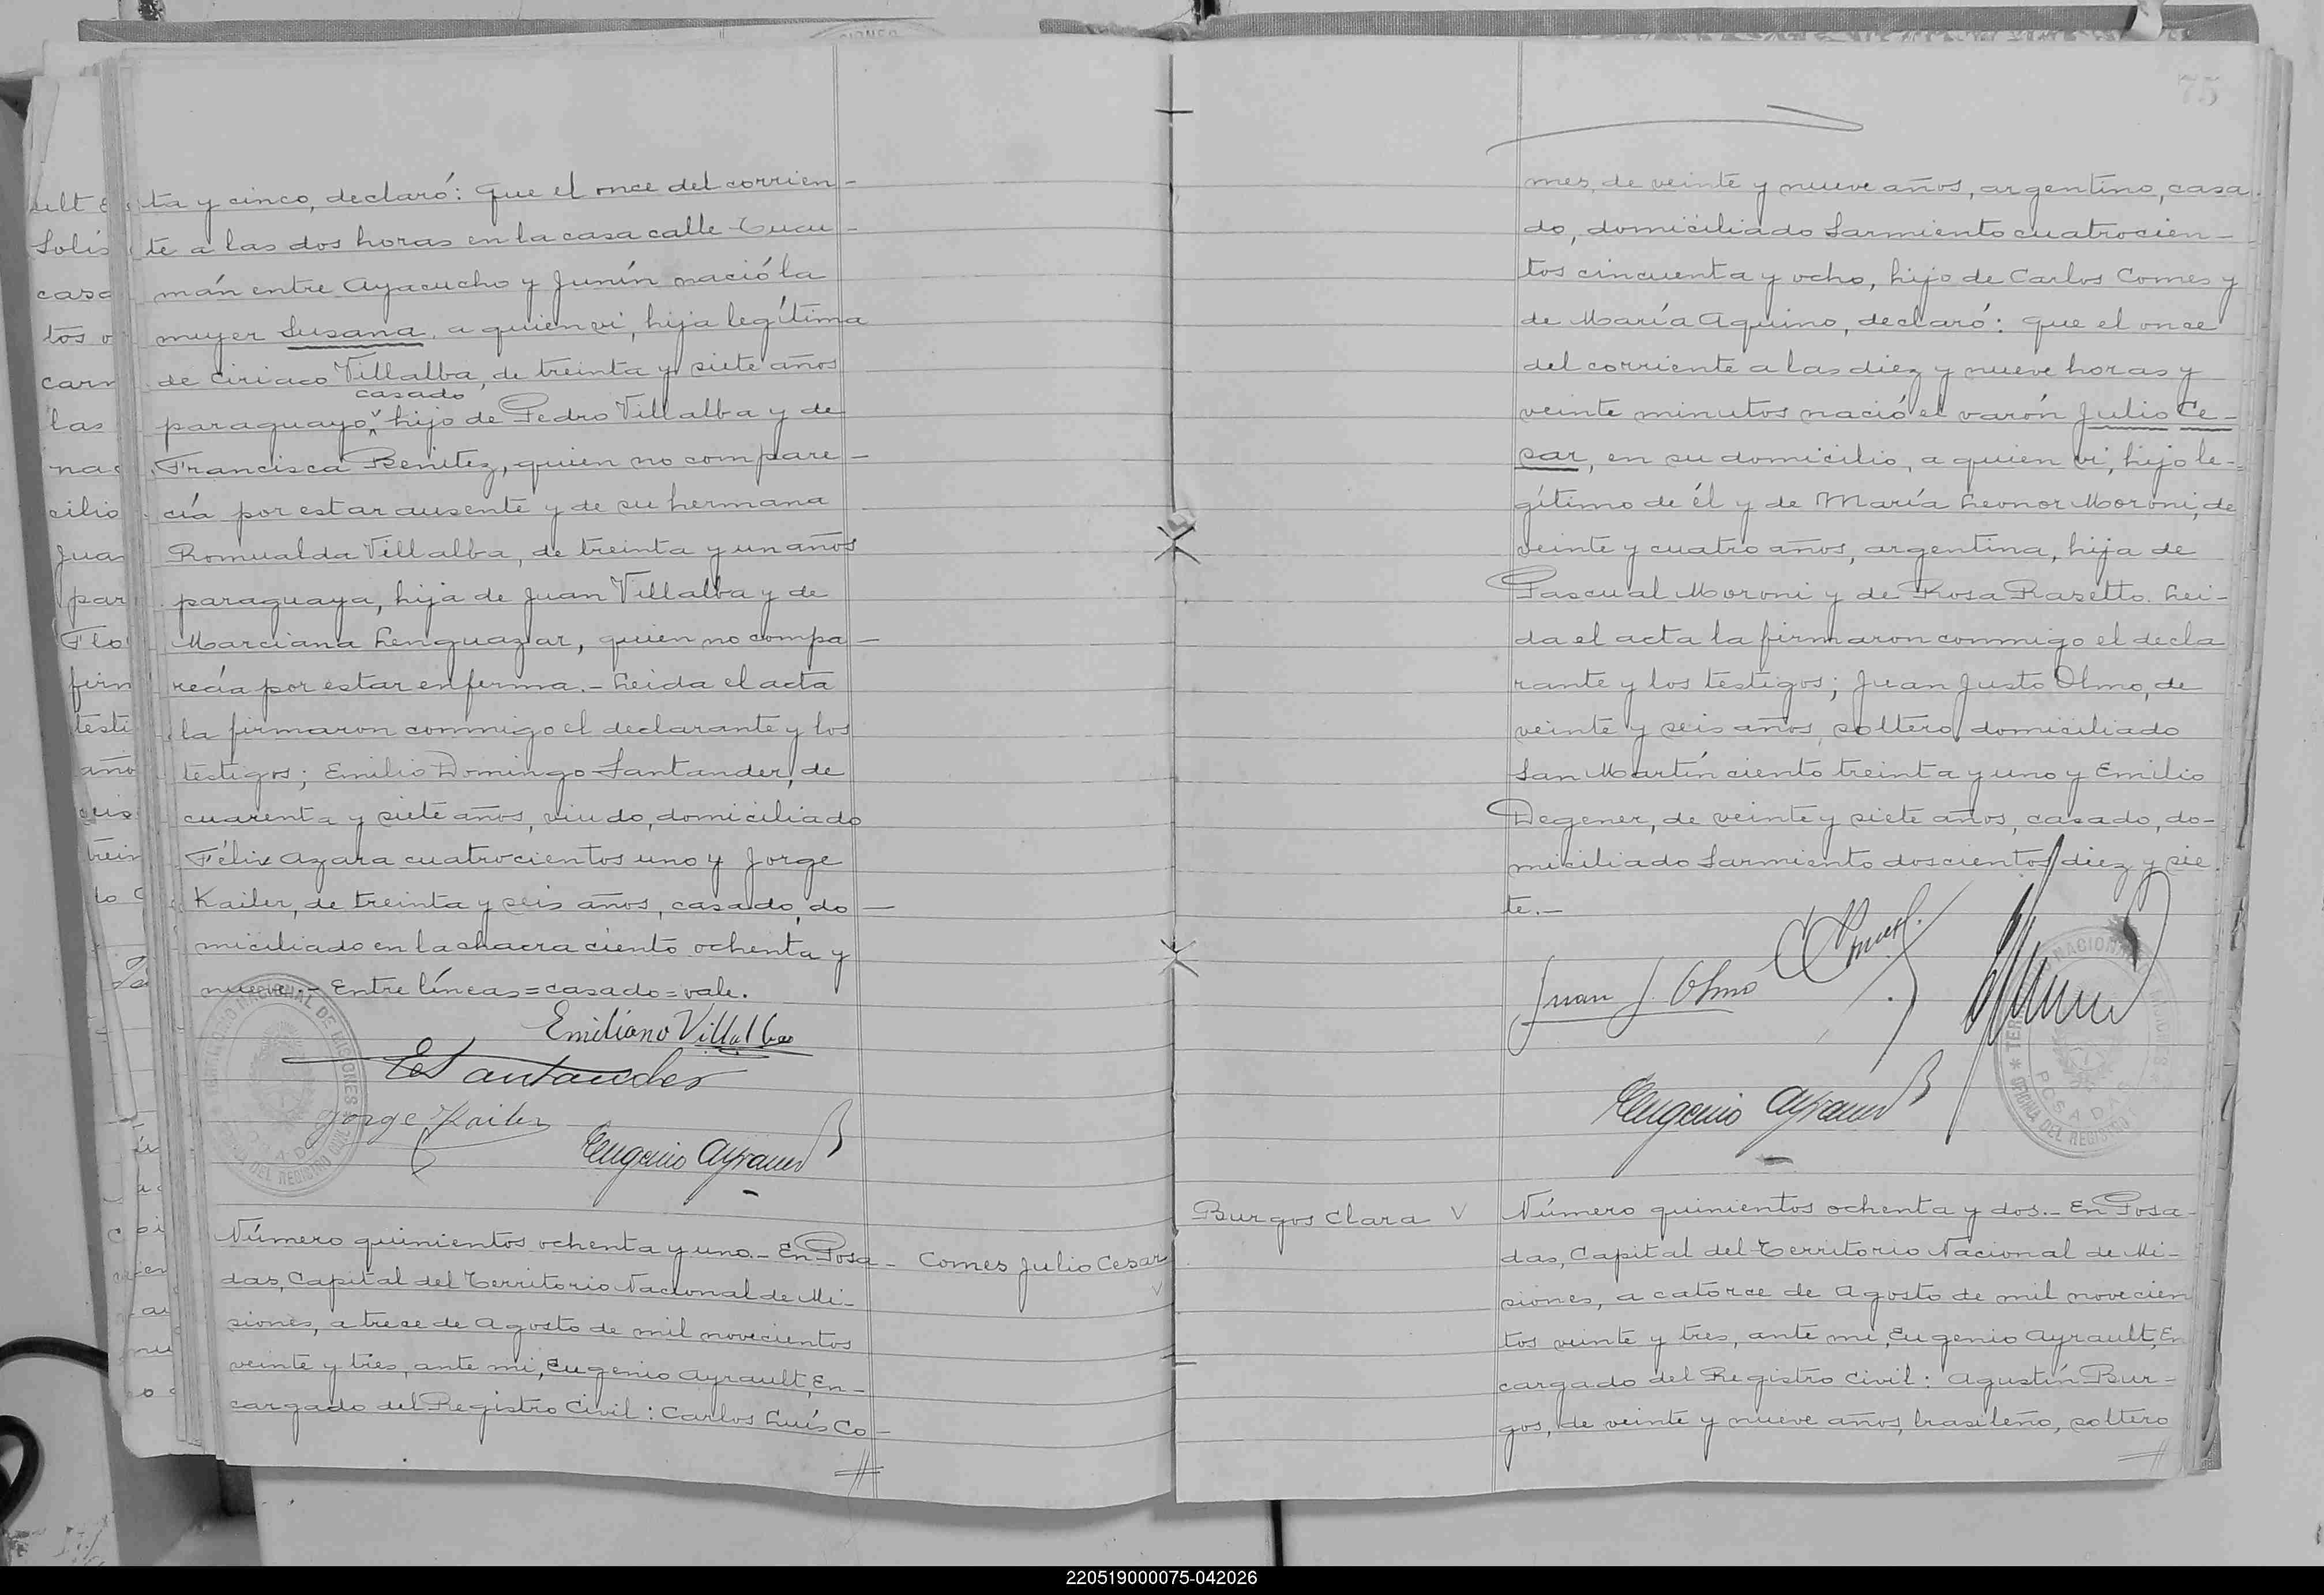 ta y cinco, declaró: Que el once del corrien-
te a las dos horas en la casa calle Tucu-
mán entre Ayacucho y Junín nació la
mujer Susana, a quien vi, hija legítima
de Ciriaco Villalba, de treinta y siete años
casado
paraguayo, hijo de Pedro Villalba y de
Francisca Benitez, quien no compare-
cía por estar ausente y de su hermana
Romualda Villalba, de treinta y un años
paraguaya, hija de Juan Villalba y de
Marciana Lenguazar, quien no compa-
recía por estar enferma.- Leida el acta
la firmaron conmigo el declarante y los
testigos; Emilio Domingo Santander, de
cuarenta y siete años, viudo, domiciliado
Félix Azara cuatrocientos uno y Jorge
Kailer, de treinta y seis años, casado, do-
miciliado en la chacra ciento ochenta y
nueve.- Entre líneas=casado=vale.
Emiliano Villalba
E Santander
Jorge Kailer
Eugenio Ayrault
Número quinientos ochenta y uno.- En Posa-
das, Capital del Territorio Nacional de Mi-
siones, a trece de Agosto de mil novecientos
veinte y tres, ante mi, Eugenio Ayrault, En-
cargado del Registro Civil: Carlos Luís Co-
Comes Julio Cesar
75
mes, de veinte y nueve años, argentino, casa-
do, domiciliado Sarmiento cuatrocien-
tos cincuenta y ocho, hijo de Carlos Comes y
de María Aquino, declaró: que el once
del corriente a las diez y nueve horas y
veinte minutos nació el varón Julio Ce-
sar, en su domicilio, a quien vi, hijo le-
gítimo de él y de María Leonor Moroni, de
veinte y cuatro años, argentina, hija de
Pascual Moroni y de Rosa Rasetto. Lei-
da el acta la firmaron conmigo el decla
rante y los testigos; Juan Justo Olmo, de
veinte y seis años, soltero, domiciliado
San Martín ciento treinta y uno y Emilio
Degener, de veinte y siete años, casado, do-
miciliado Sarmiento doscientos diez y sie
te.-
Juan J. Olmo
Eugenio Ayrault
Burgos Clara
Número quinientos ochenta y dos.- En Posa-
das, Capital del Territorio Nacional de Mi-
siones, a catorce de Agosto de mil novecien
tos veinte y tres, ante mi, Eugenio Ayrault, En
cargado del Registro Civil: Agustín Bur-
gos, de veinte y nueve años, brasileño, soltero
220519000075-042026